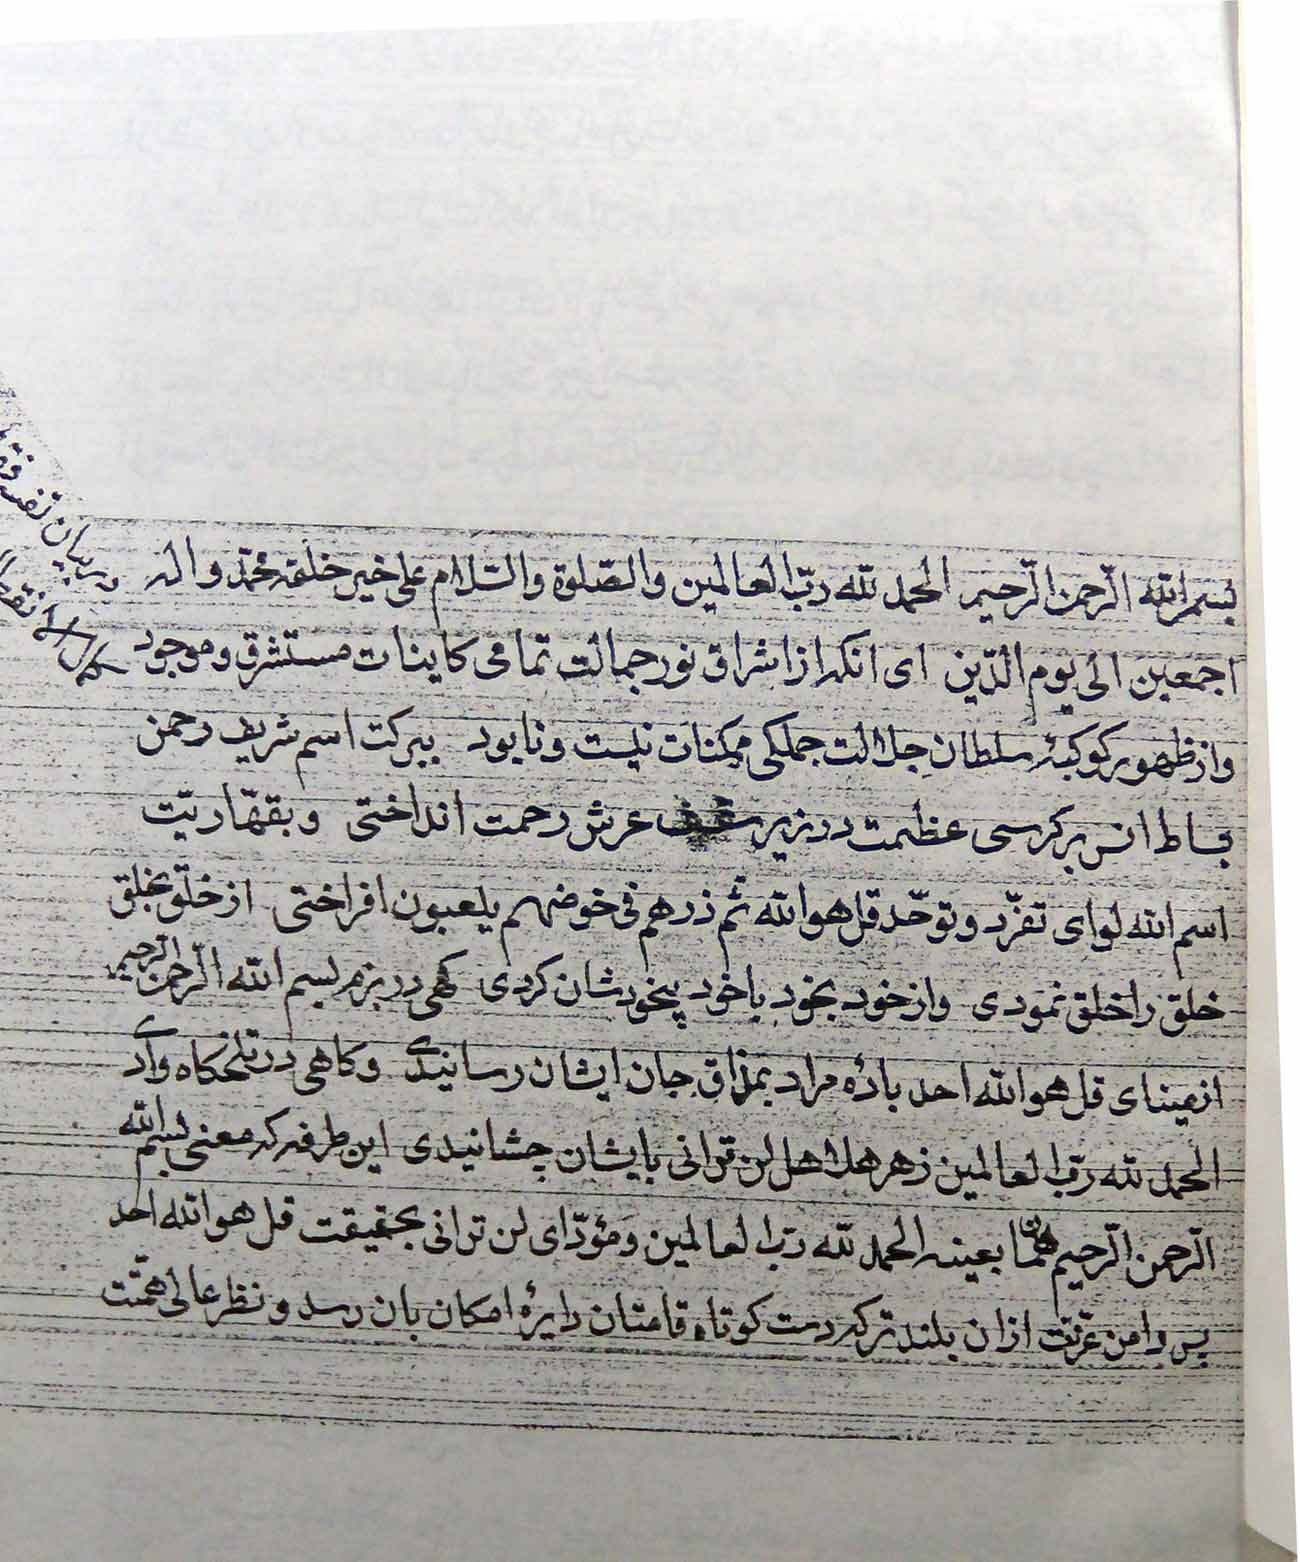 بسم الله الرّحمن الرّحیم الحمد للّه ربّ العالمین والصّلوة والسّلام علی خیر خلقه محمّد واله
اجمعین الی یوم الدّین ای انکه از اشراق نور جمالت تمامی کاینات مستشرق و موجود
واز ظهور کوکبهٔ سلطان جلالت جملکی ممکنات نیست و نابود ببرکت اسم شریف رحمن
بساط انس بر کرسی عظمت در زیر عرش رحمت انداختی وبقهّاریّت
اسم الله لوای تفرّد و توحّد قل هو الله ثم ذرهم فی خوضهم یلعبون افراختی از خلق بخلق
خلق را خلق نمودی واز خود بخود با خود بیخودشان کردی کهی در بزم بسم الله الرّحمن الرّحیم
از مینای قل هو الله احد بادهٔ مراد بمذاق جان ایشان رسانیدی وکاهی در تلخکاه وادی
الحمد للّه ربّ العالمین زهر هلاهل لن ترانی بایشان چشانیدی این طرفه که معنی بسم الله
الرّحمن الرّحیم همان بعینه الحمد للّه ربّ العالمین و مؤدّای لن ترانی بحقیقت قل هو الله احد
پس دامن عزّتت ازان بلندتر که دست کوتاه قامتان دایرهٔ امکان بان رسد و نظر عالی همّت
در بیان